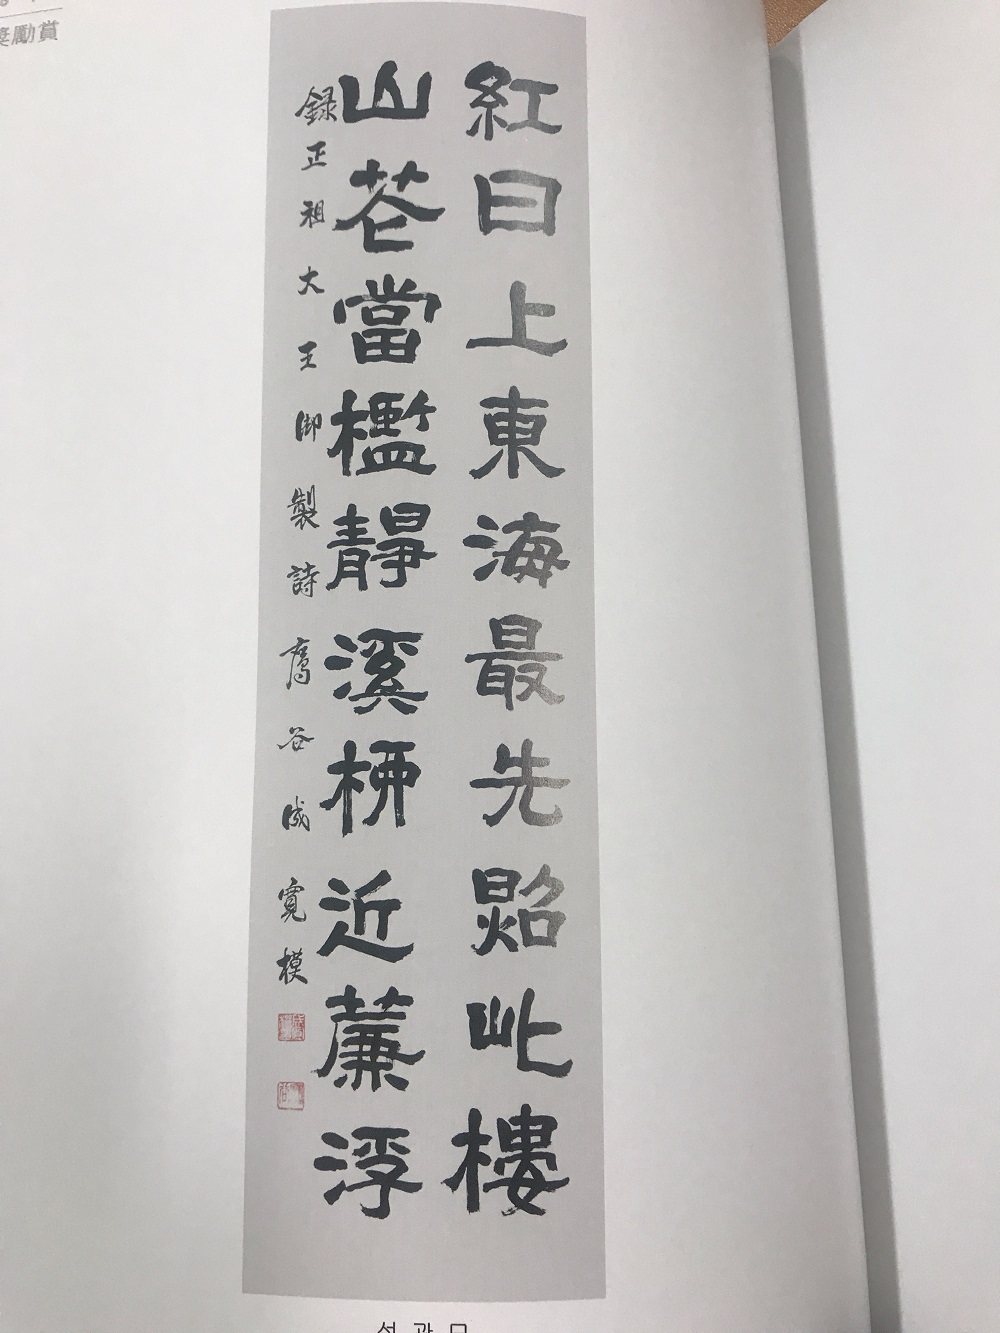 奬勵賞
紅日上東海最先照此樓
山花當檻靜溪柳近簾浮
録正祖大王御製詩 鳶谷 成寬模
성관모